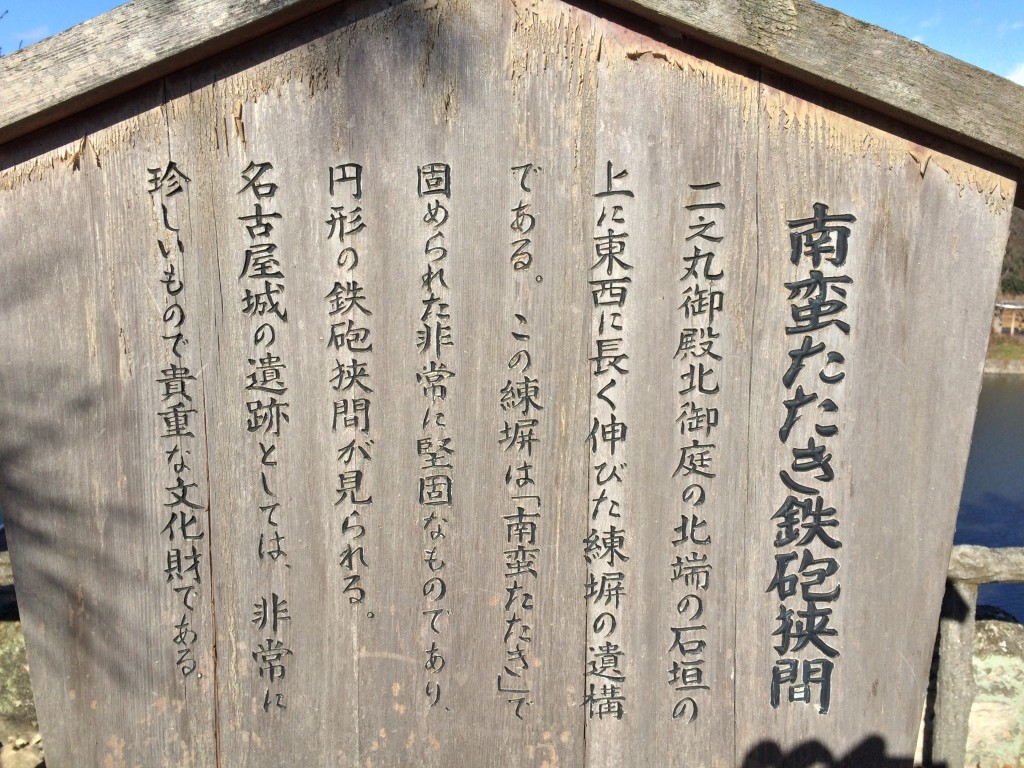 南蛮たたき鉄砲狭間
二之丸御殿北御庭の北端の石垣の
上に東西に長く伸びた練塀の遺構
である。この練塀は「南蛮たたき」で
固められた非常に堅固なものであり、
円形の鉄砲狭間が見られる。
名古屋城の遺跡としては、非常に
珍しいもので貴重な文化財である。